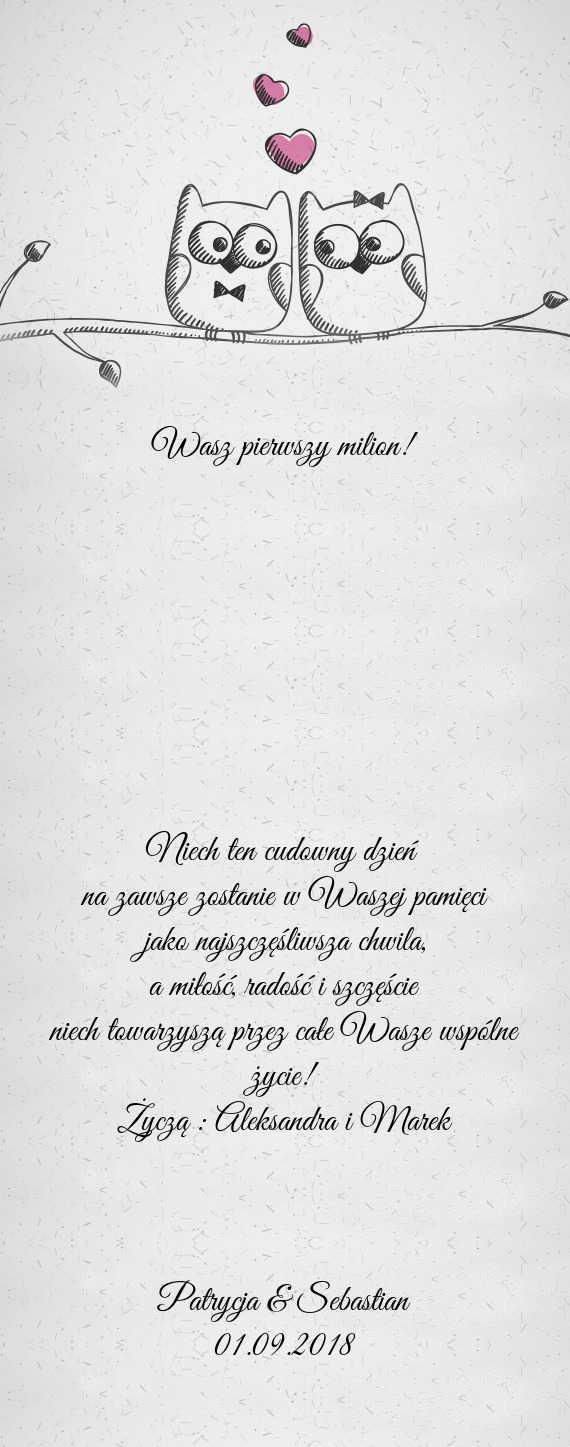 Wasz pierwszy milion!
Niech ten cudowny dzień
na zawsze zostanie w Waszej pamięci
jako najszczęśliwsza chwila,
a miłość, radość i szczęście
niech towarzyszą przez całe Wasze wspólne
życie!
Życzą : Aleksandra i Marek
Patrycja & Sebastian
01.09.2018